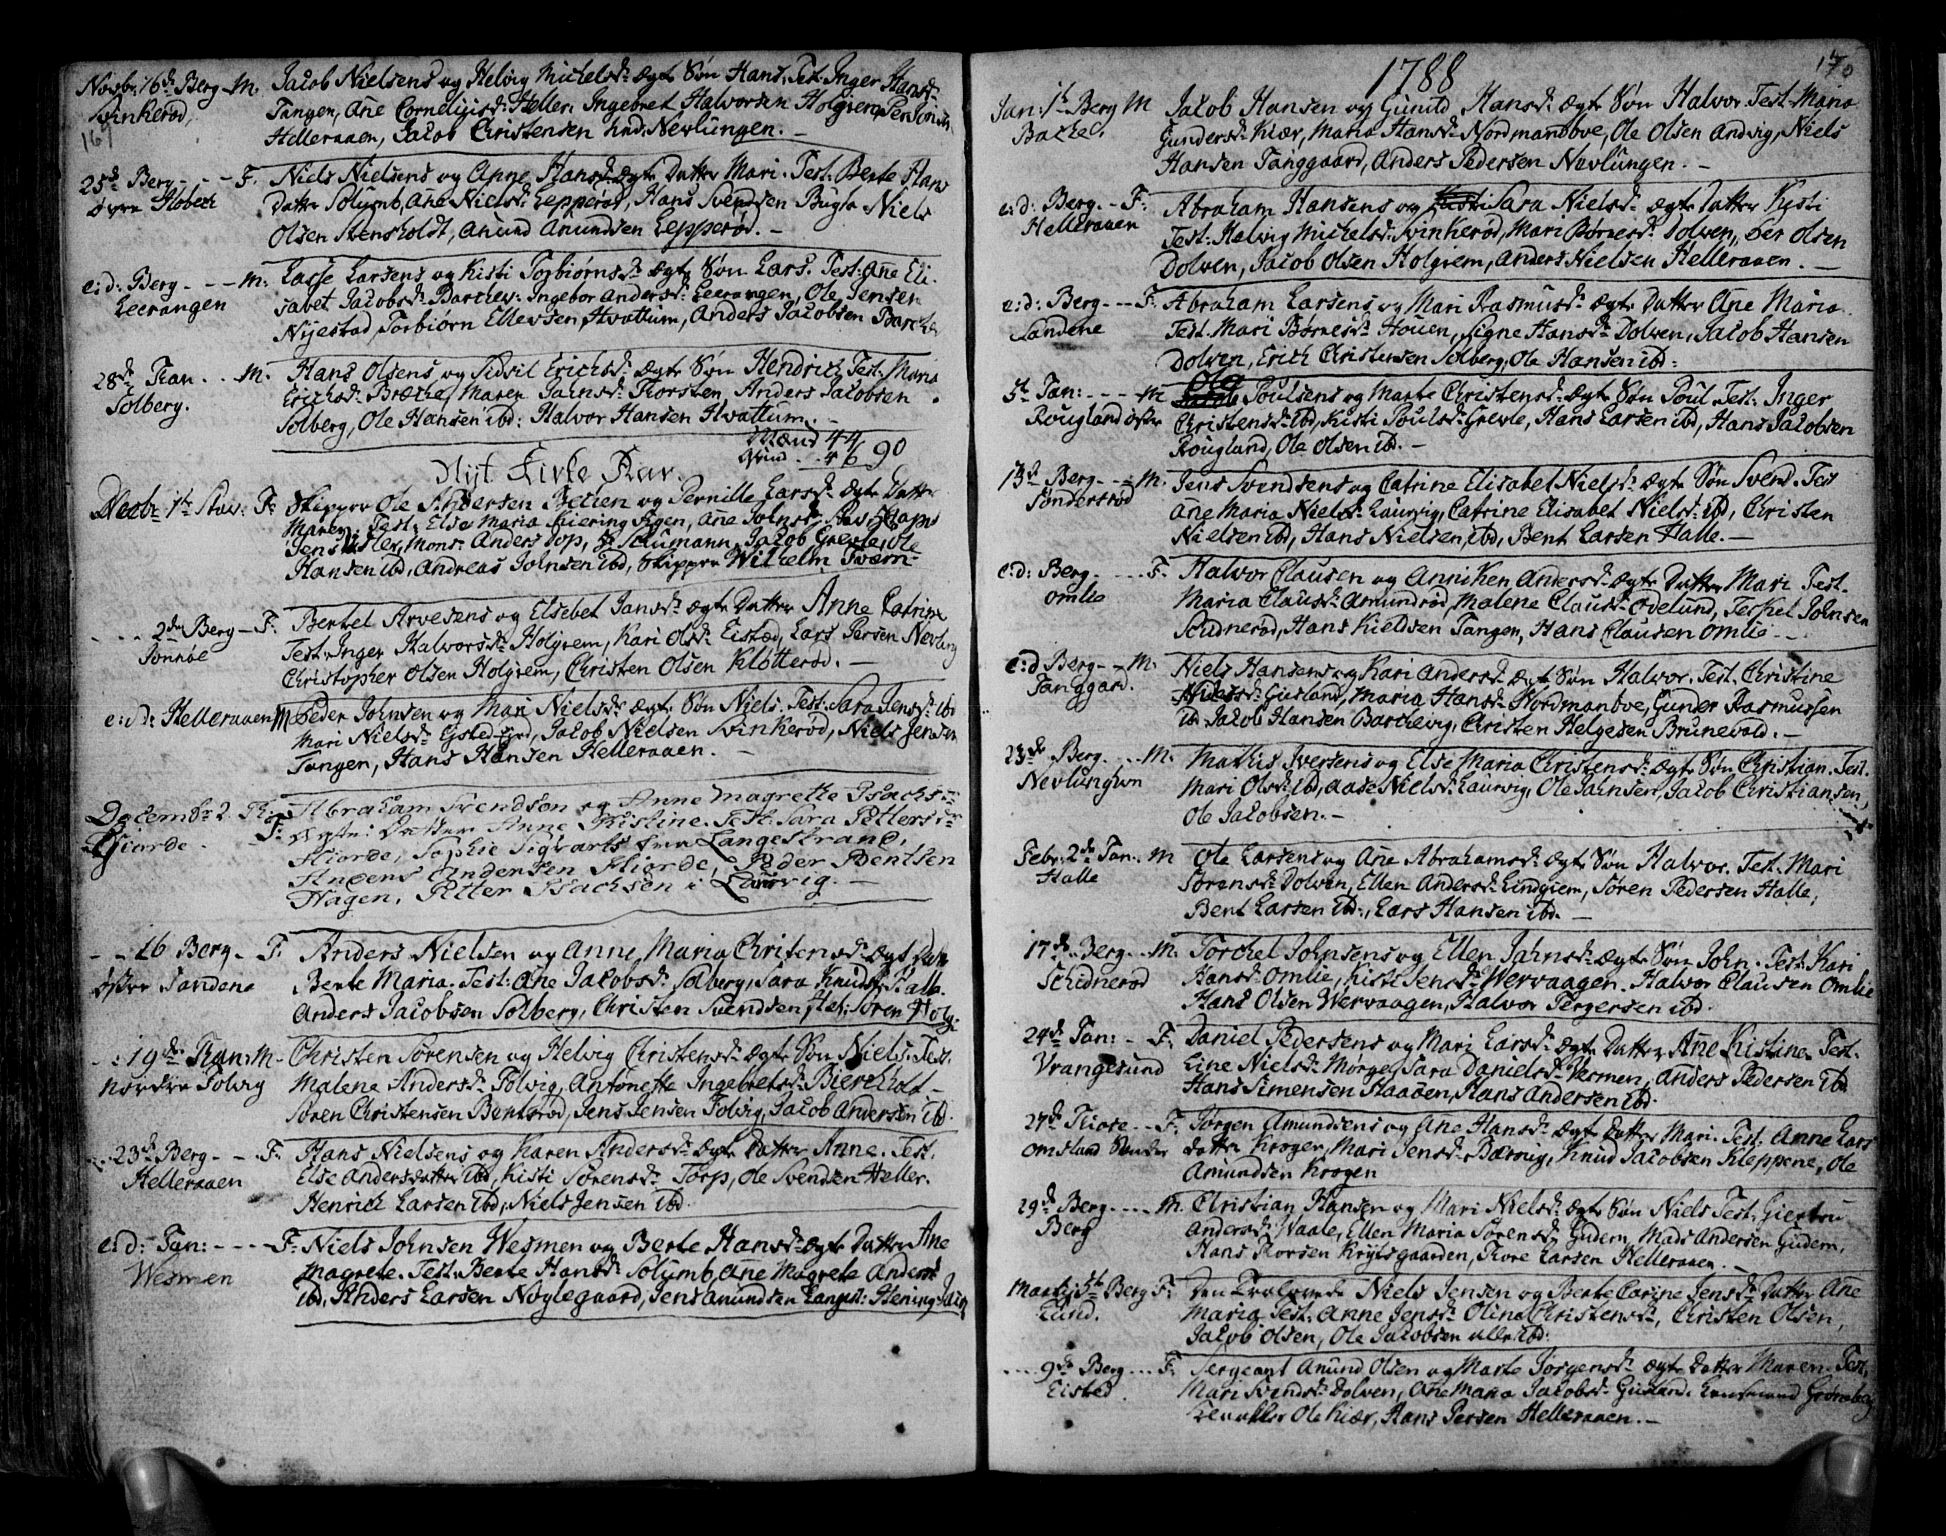 169
Novb: 16de Berg - M. Jacob Nielsens og Helvig Michelsd: Ægte Søn Hans. Test. Inger Hansd:
Svinkerød, Tangen, Ane Corneliisd: Heller: Ingebret Halvorsen Holgrem
Helleraaen, Jacob Christensen hnd. Nevlungen. -
25de Berg - - - F. Niels Nielsens og Anne Hansd: Ægte Datter Mari. Test: Berte Hans
øvre datter Solumb, Ane Nielsd: Lepperød, Hans Svendsen Bugla Niels
Olsen Stensholdt, Amund Amundsen Lepperød. -
e: d: Berg - - - M: Lasse Larsens og Kisti Torbiørnsd: Ægte Søn Lars. Test: Ane Eli-
Leerangen sabet Jacobsd: Barchev: Ingebor Andersd: Leerangen, Ole Jensen
Nijestad Torbiørn Ellevsen Hvattum, Anders Jacobsen
28de Tan . . M. Hans Olsens og Sidsil Erichsd: Ægte Søn Hendrich Test. Maria
Solberg. Erichsd: Maren Jahnsd: Torsten, Anders Jacobsen
Solberg, Ole Hansen ibd: Halvor Hansen Hvattum. -
Mænd 44
46 90
Nijt Kirke Aar.
Decbr 1te F: Skipper Ole Andersen Betien og Pernille Larsd: Ægte Datter
Maren. Test: Else Maria Ane Johnsd:
Mons: Anders Top, Schumann, Jacob Greve, Ole
Hansen ibd, Andreas Johnsen ibd, Skipper Wilhelm
. . . 2de Berg - F: Bertel Arvesens og Elsebet Jansd: Ægte Datter Anne Catrine
Test: Inger Halvorsd: Holgrem, Kari Olsd: Eisted, Lars Persen Nevlung
Christopher Olsen Holgrem, Christen Olsen Kløtterød. -
e: d: Helleraaen M Peder Johnsen og Mari Nielsd: ægte Søn Niels. Test: Sara Jensd: ib
Mari Nielsd: Jacob Nielsen Svinkerød, Niels Jensen
Tangen, Hans Hansen Helleraaen. -
Decembr 2. Abraham Svendsøn og Anne Magrette Isachsd:
Hiorde. F. Ægte: Datter Anne Kistine. Test: Sara Petters
Hiorde, Sophie Sigvarts fra Langestrand,
Anders Andersen Hiorde, Peder Bentsen
Hagen, Petter Isachsen i Laurvig. -
- - 16 Berg - F. Anders Nielsen og Anne Maria Christensd: Ægt Datr
østre Sandene Berte Maria. Test: Ane Jacobsd: Solberg, Sara Knudsd: Halle
Anders Jacobsen Solberg, Christen Svendsen Hel: Søren Holg:
. : 19de Tan: M - Christen Sørensen og Helvig Christensd: Ægte Søn Niels: Test:
Nordre Tolvig Malene Andersd: Tolvig, Antonette Ingebretsd: Bierchholt -
Søren Christensen Bentsrød, Jens Jensen Tolvig, Jacob Andersen ibd.
. . . 23de Berg - - F. Hans Nielsens og Karen Andersd: Ægte Datter Anne. Test.
Helleraaen Else Andersdatter ibd, Kisti Sørensd: Torp, Ole Svendsen Heller.
Henrich Larsen ibd, Niels Jensen ibd.
e: d: Tan: - - - - F: Niels Johnsen Wesmen og Berte Hansd: Ægte Datter Ane
Wesmen Magrete. Test: Berte Hansd: Solumb, Ane Magrete Andersd:
ibd, Anders Larsen Nøylegaard, Jens Amundsen Langest: Hening

170
1788
Jan: 1te Berg M Jacob Hansen og Gunild Hansd: Ægte Søn Halvor. Test. Maria
Gundersd: Kiær, Maria Hansd: Nordmandbve, Ole Olsen Andvig, Niels
Hansen Tanggaard, Anders Pedersen Nevlungen. -
e: d: Berg. - F. Abraham Hansens og Sara Nielsd: Ægte Datter Kisti
Helleraaen Test: Helvig Michelsd: Svinkerød, Mari Børnesd: Dolven, Per Olsen
Dolven, Jacob Olsen Holgrem, Anders Nielsen Helleraaen. -
e: d: Berg - - - F: Abraham Larsens og Mari Rasmusd: Ægte Datter Ane Maria
Sandene Test. Mari Børnesd: Houen, Signe Hansd: Dolven, Jacob Hansen
Dolven, Erich Christensen Solberg, Ole Hansen ibd:
5te Tan: - - - - M Ole Poulsens og Marte Christensd: Ægte Søn Poul. Test: Inger
Rougland østre Christensd: ibd, Kisti Poulsd: Grevle, Hans Larsen ibd, Hans Jacobsen
Rougland, Ole Olsen ibd. -
13de Berg - - - M. Jens Svendsens og Catrine Elisabet Nielsd: Ægte Søn Svend. Test
Søndersrød Ane Maria Nielsd: Laurvig, Catrine Elisabet Nielsd: ibd, Christen
Nielsen ibd, Hans Nielsen, ibd, Bent Larsen Halle. -
e: d: Berg - - - - F. Halvor Clausen og Anniken Andersd: Ægte Datter Mari Test.
Omlie Maria Clausd: Asmundrød, Malene Clausd: Ødelund, Terchel Johnsen
Schidnerød, Hans Kieldsen Tangen, Hans Clausen Omlie. - -
e: d Berg - - M. Niels Hansens og Kari Andersd: Ægt Søn Halvor. Test. Christine
Tanggard. Gusland, Maria Hansd: Nordmandve, Gunder Rasmussen
ib Jacob Hansen Barchevig, Christen Helgesen Brunevold. -
23de Berg. . . . M. Mathis Iversens og Else Maria Christensd: Ægte Søn Christian. Test.
Nevlunghvn Mari Olsd: ibd, Aase Nielsd: Laurvig, Ole Jahnsen, Jacob Christiansen,
Ole Jacobsen. -
Febr: 2de Tan. . M Ole Larsens og Ane Abrahamsd: Ægte Søn Halvor. Test. Mari
Halle Sørensd: Dolven, Ellen Andersd: Lindgiem, Søren Pedersen Halle,
Bent Larsen ibd:, Lars Hansen ibd. -
17de Berg. . M. Torchel Johnsens og Ellen Jahnsd: Ægte Søn John. Test: Kari
Schidnerød Hansd: Omlie, Kisti Jensd: Wervaagen. Halvor Clausen Omlie
Hans Olsen Wervaagen, Halvor Tergersen ibd.
24de Tan: - F. Daniel Pedersens og Mari Larsd: Ægte Datter Ane Kistine. Test.
Vrangesund Line Nielsd: Mørge, Sara Danielsd: Vesmen, Anders Pedersen ibd
Hans Simensen Haaøen, Hans Andersen ibd.
27de Kiose - - F. Jørgen Amundsens og Ane Hansd: Ægt Datter Mari. Test: Anne Lars
Omsland Sønder datter Kroger, Mari Jensd: Knud Jacobsen Kleppene, Ole
Amundsen Krogen
29de Berg . . . . M. Christian Hansen og Mari Nielsd: Ægte Søn Niels Test. Giertru
Berg Andersd: Vaale, Ellen Maria Sørensd: Gudem, Mads Andersen Gudem,
Hans Thorsen Krigsgaarden, Thore Larsen Helleraaen. -
Marti: 5te Berg F: Den Trolovede Niels Jensen og Berte Carine Jensd: Datter Ane
Lund. Maria Test: Anne Jensd: Olina Christensd:, Christen Olsen,
Jacob Olsen, Ole Jacobsen alle ibd:
. . . 9de Berg . . . F: Sergeant Amund Olsen og Marte Jørgensd: Ægte Datter Maren. Test,
Eisted Mari Svendsd: Dolven, Ane Maria Jacobsd: Gusland.
Ole Kiær, Hans Persen Helleraaen. -